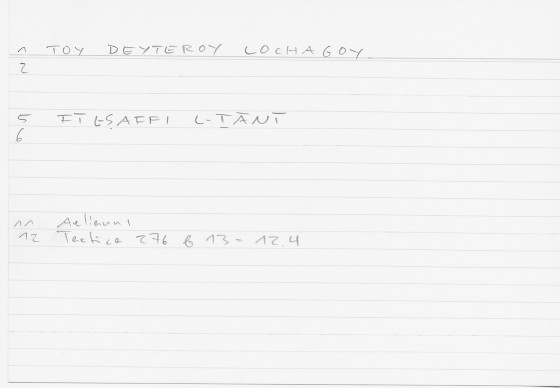 1 TOY DEYTEROY LOCHAGOY
2
5 ET̄ EṢAFFI L-ṮĀNĪ
6
11 Aelianus
12 Tactica 276 b 13 - 12.4